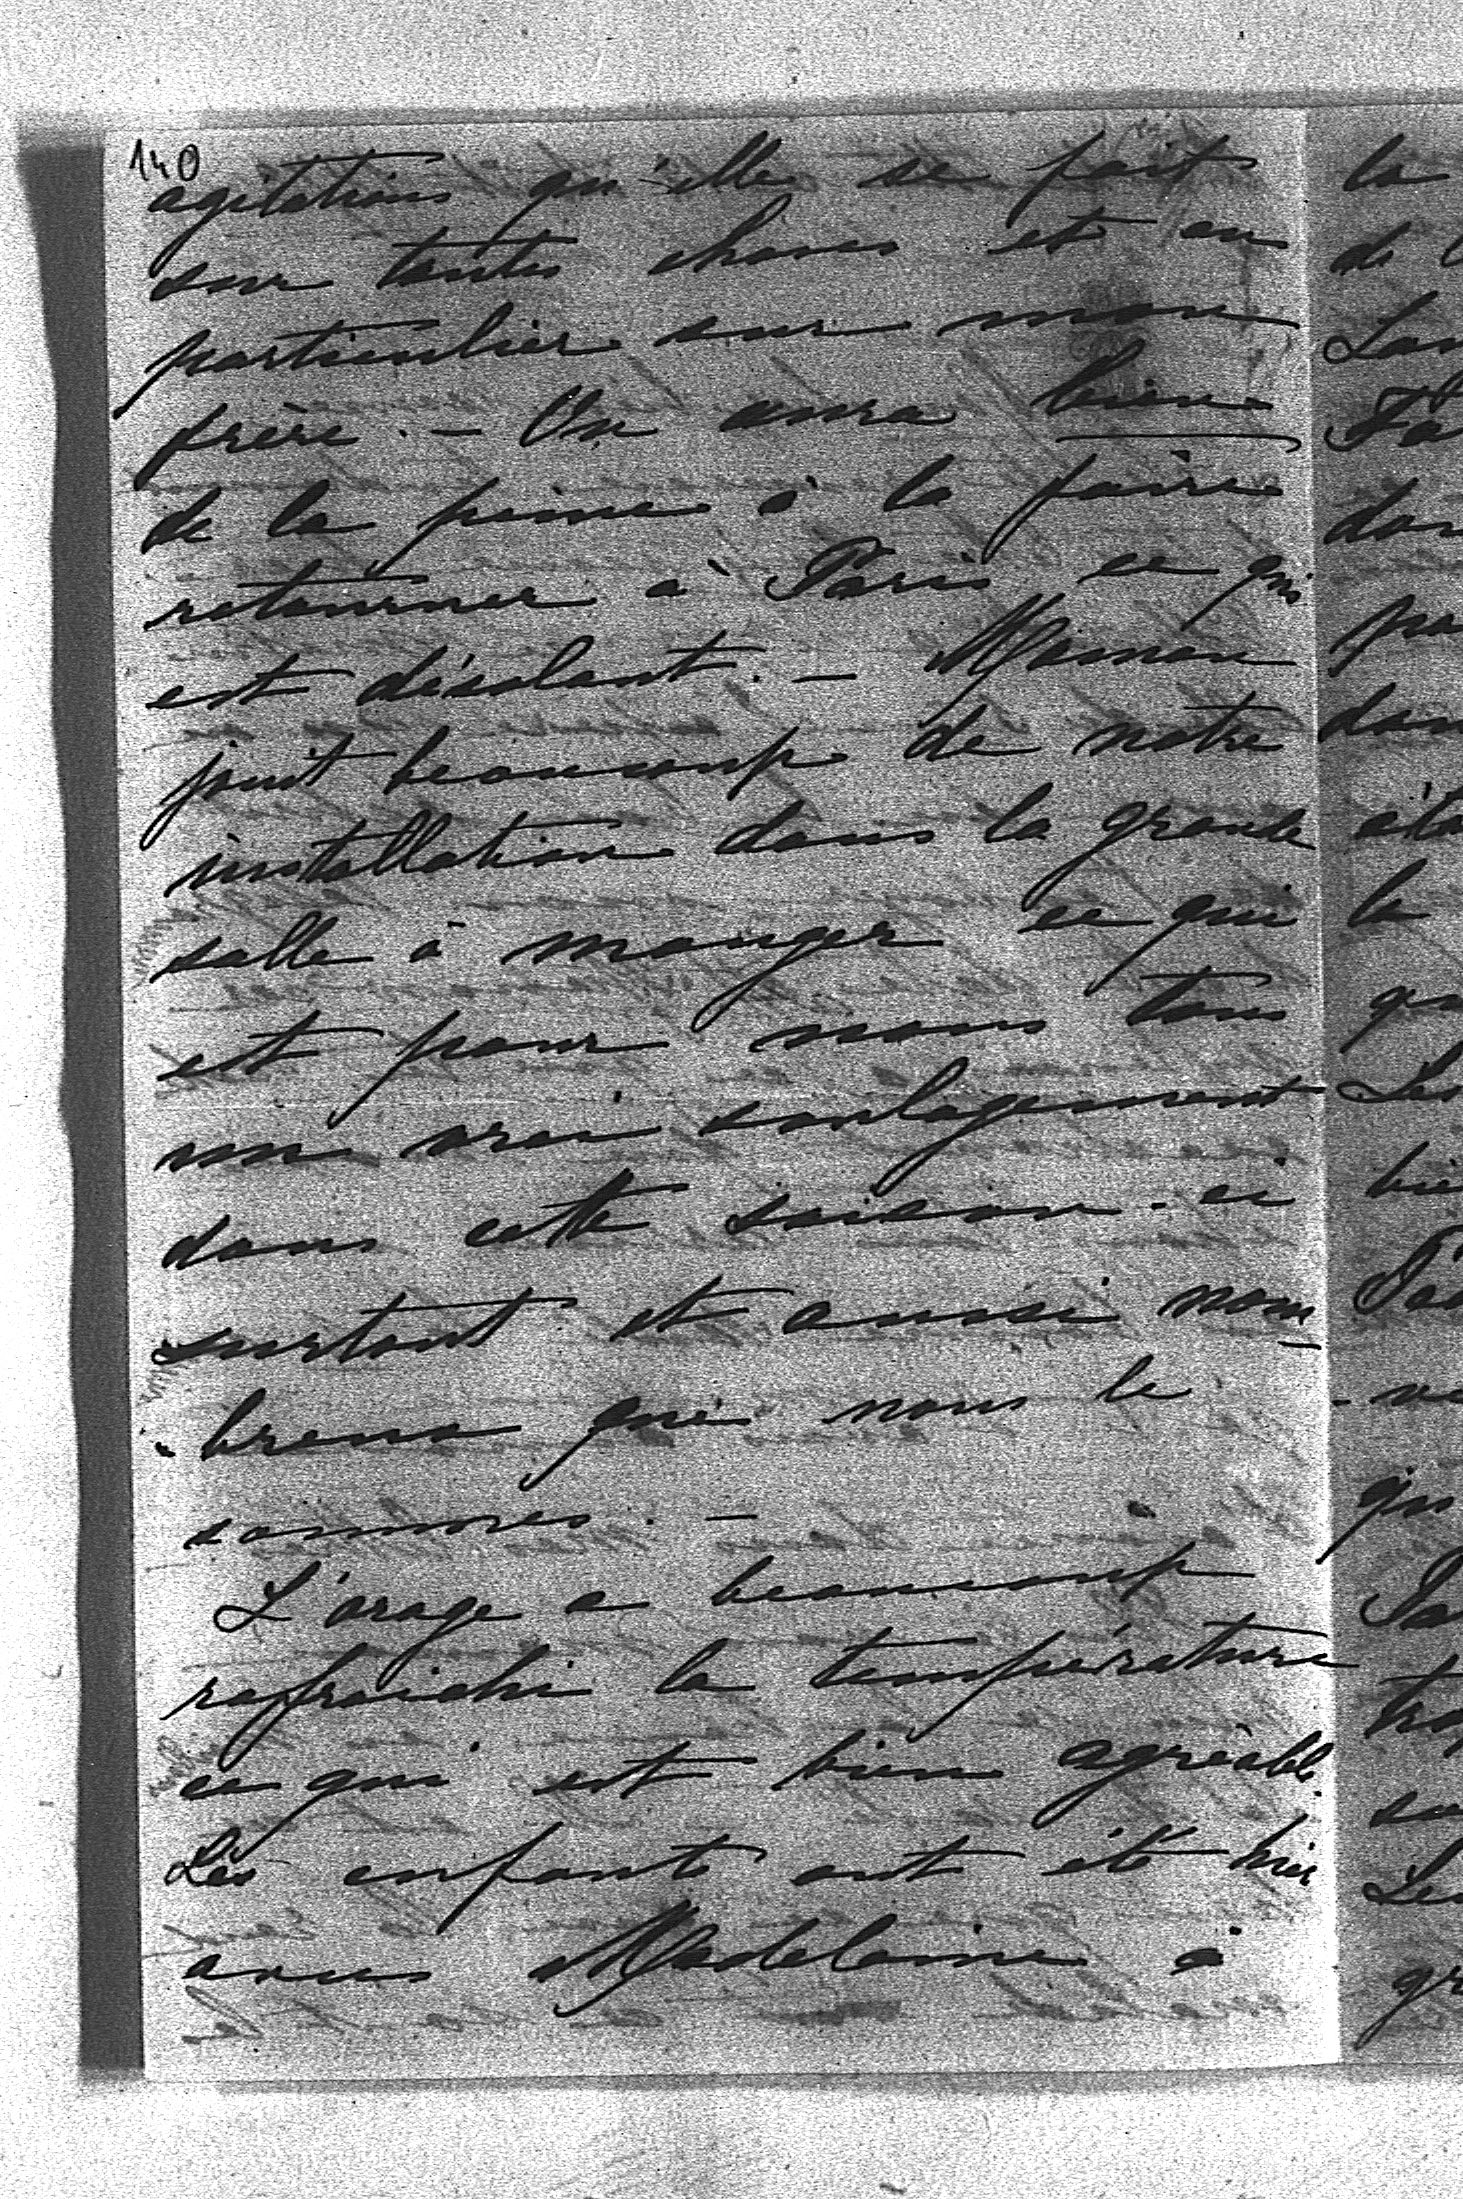 140
agitations qu'elle se fait
sur toutes choses et en
particulier sur mon
frère. – On aura bien
de la peine à la faire
retourner à Paris ce qui
est désolant. – Maman
jouit beaucoup de notre
installation dans la grande
salle à manger ce qui
est pour nous tous
un vrai soulagement
dans cette saison-ci
surtout et aussi nom-
-breux que nous le
sommes. –
L'orage a beaucoup
rafraichi la température
ce qui est bien agréable.
Les enfants ont été hier
avec Madeleine à